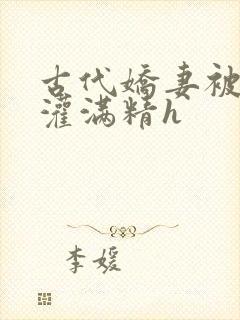 古代嬌妻被
灌满精h
李媛